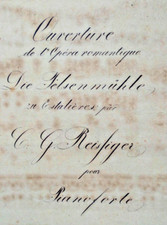 Ouverture
de l'Opéra romantique
Die Felsenmühle
zu Estalières par
C. G. Reissiger
pour
Pianoforte